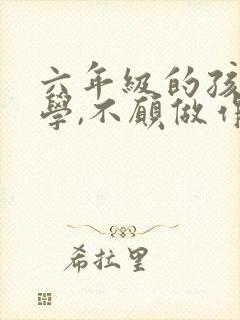 六年级的孩
學,不願做作
希拉里